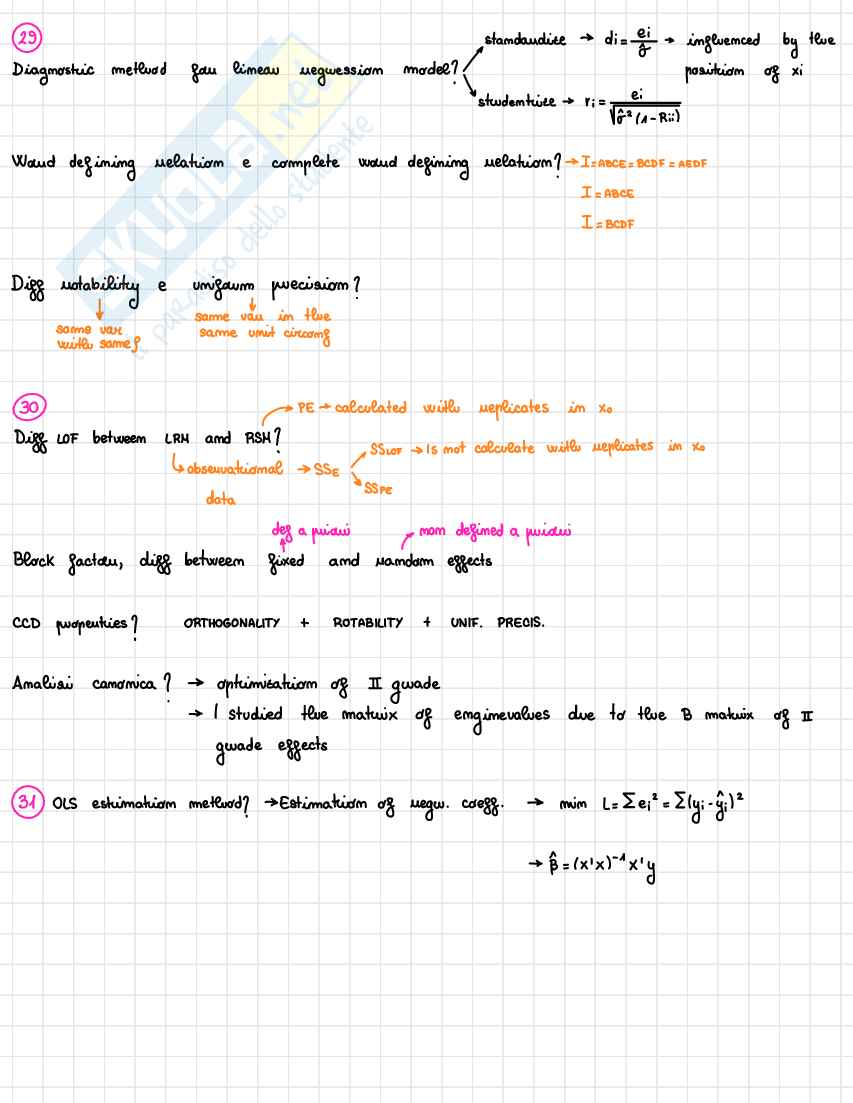 29
standardize → di = ei/σ̂ → influenced by the position of xi
Diagnostic method for linear regression model?
studentize → ri = ei/√(σ̂²(1-Rii))
Word defining relation e complete word defining relation? → I = ABCE = BCDF = AEDF
I = ABCE
I = BCDF
Diff rotability e uniform precision?
same var with same ρ
same var in the same unit circonf
30
PE → calculated with replicates in x₀
Diff LOF between LRM and RSM?
observational data → SSE
SSLOF → Is not calculate with replicates in x₀
SSPE
def a priori
non defined a priori
Block factor, diff between fixed and random effects
CCD properties? ORTHOGONALITY + ROTABILITY + UNIF. PRECIS.
Analisi canonica? → optimization of II grade
→ I studied the matrix of enginevalues due to the B matrix of II
grade effects
31 OLS estimation method? → Estimation of regr. coeff. → min L = Σei² = Σ(yi - ŷi)²
→ β̂ = (x'x)⁻¹ x'y
SKUOLA.net
il paradiso dello studente